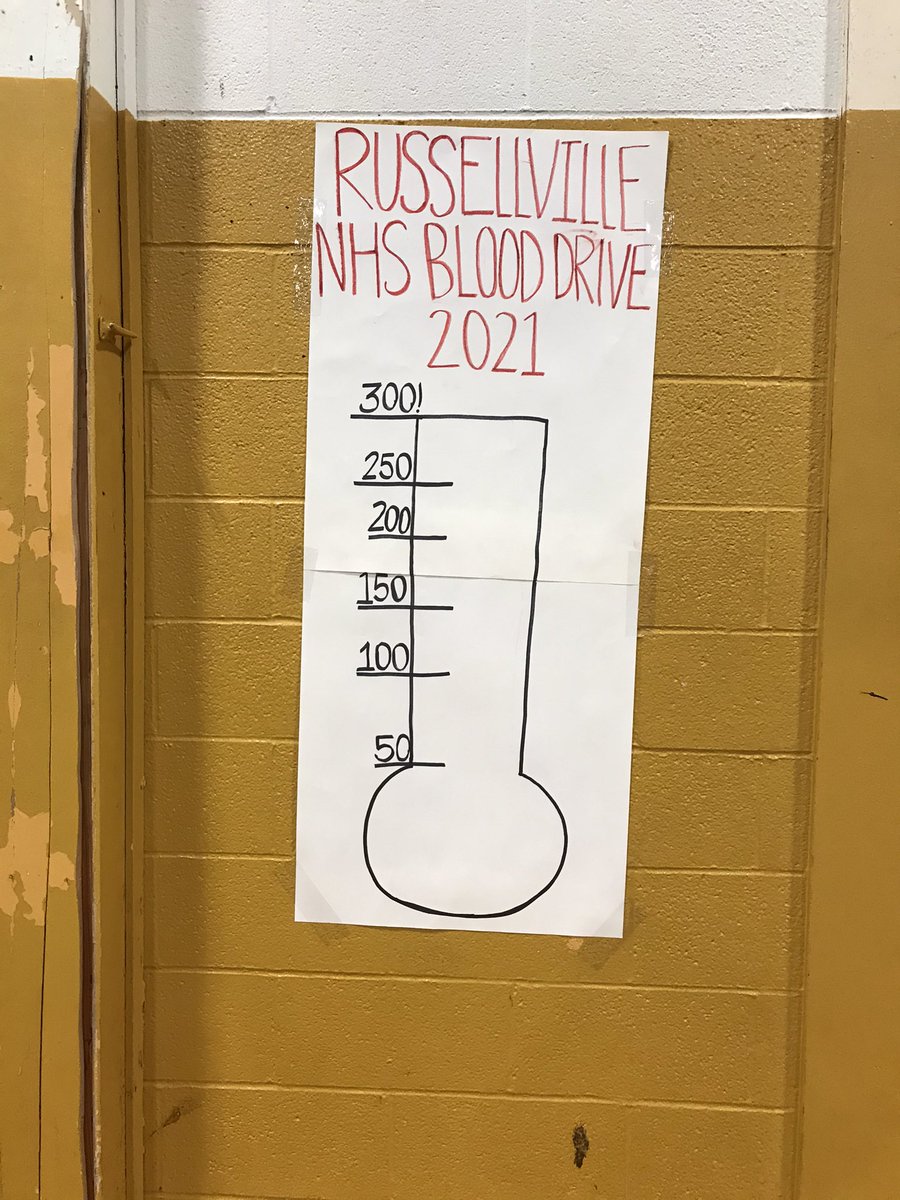 RUSSELLVILLE
NHS BLOOD DRIVE
2021
300!
250
200
150
100
50